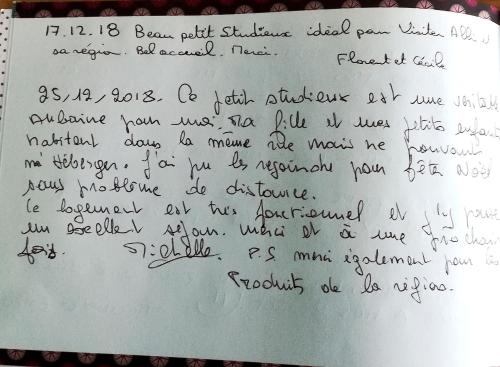 17.12.18 Beau petit studieux idéal pour Visiter Albi et
sa région. Bel accueil. Merci.
Florent et Cécile
25/12/2018. Ce petit studieux est une véritable
Aubaine pour moi. Ma fille et mes petits enfants
habitant dans la même rue mais ne pouvant
m'Héberger. J'ai pu les rejoindre pour fêter Noël
sans problème de distance.
Ce logement est très fonctionnel et j'y passe
un excellent séjour. Merci et à une prochaine
fois. Michelle. P.S merci également pour les
Produits de la région.